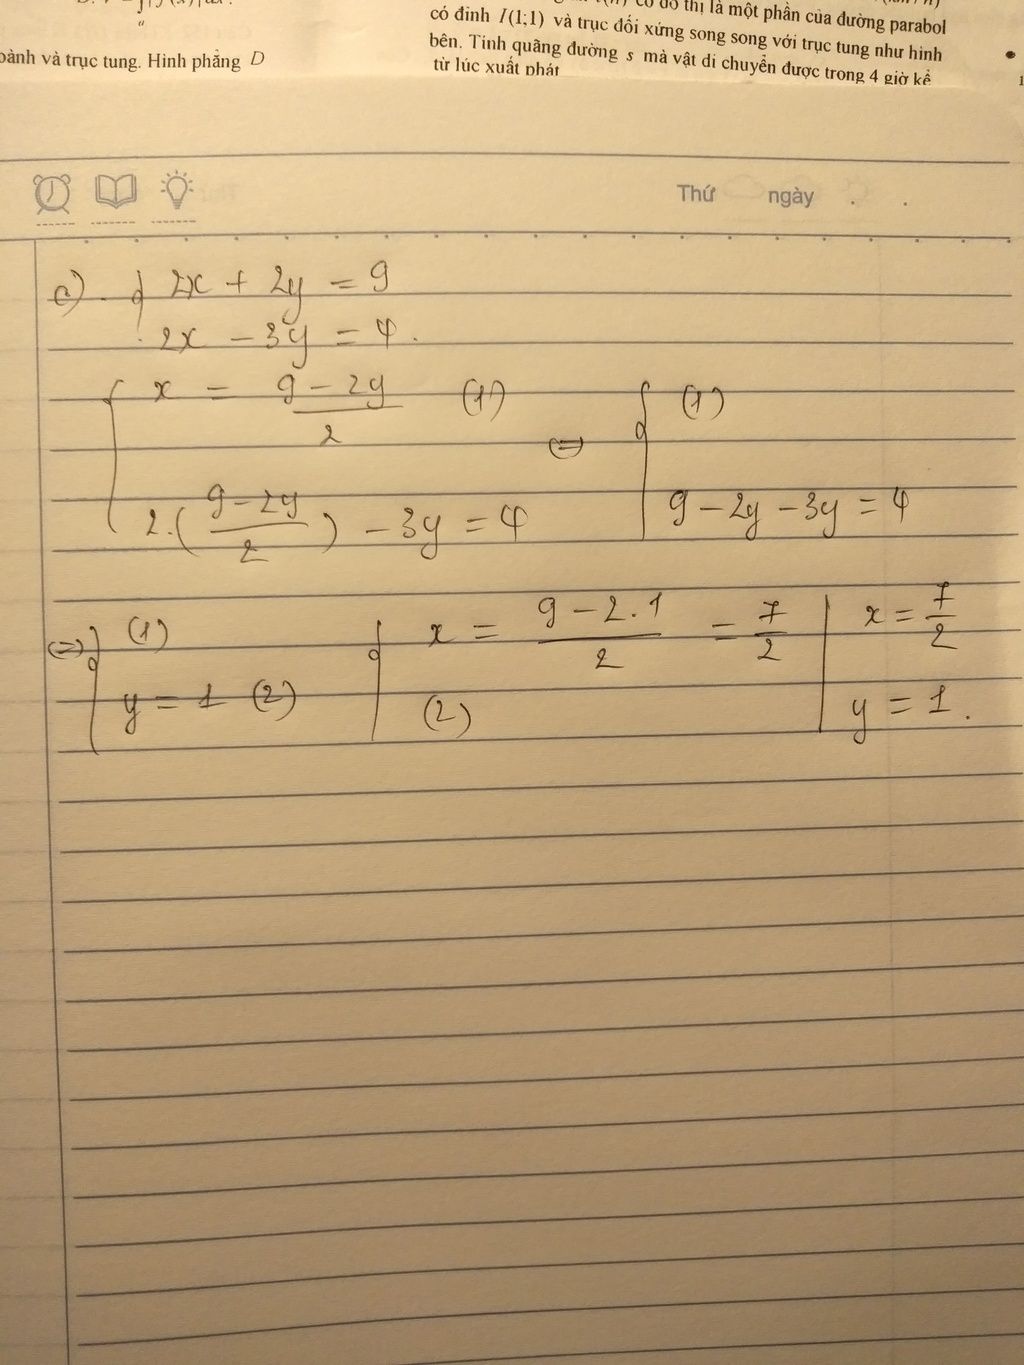 có đỉnh I(1;1) và trục đối xứng song song với trục tung như hình
bên. Tính quãng đường s mà vật di chuyển được trong 4 giờ kể
từ lúc xuất phát
oành và trục tung. Hình phẳng D
Thứ ngày . .
c) { 2x + 2y = 9
2x - 3y = 4.
{ x = \frac{9 - 2y}{2} (1) ⇔ { (1)
2.(\frac{9-2y}{2}) - 3y = 4 9 - 2y - 3y = 4
⇔ { (1) { x = \frac{9 - 2.1}{2} = \frac{7}{2} | x = \frac{7}{2}
y = 1 (2) (2) y = 1.